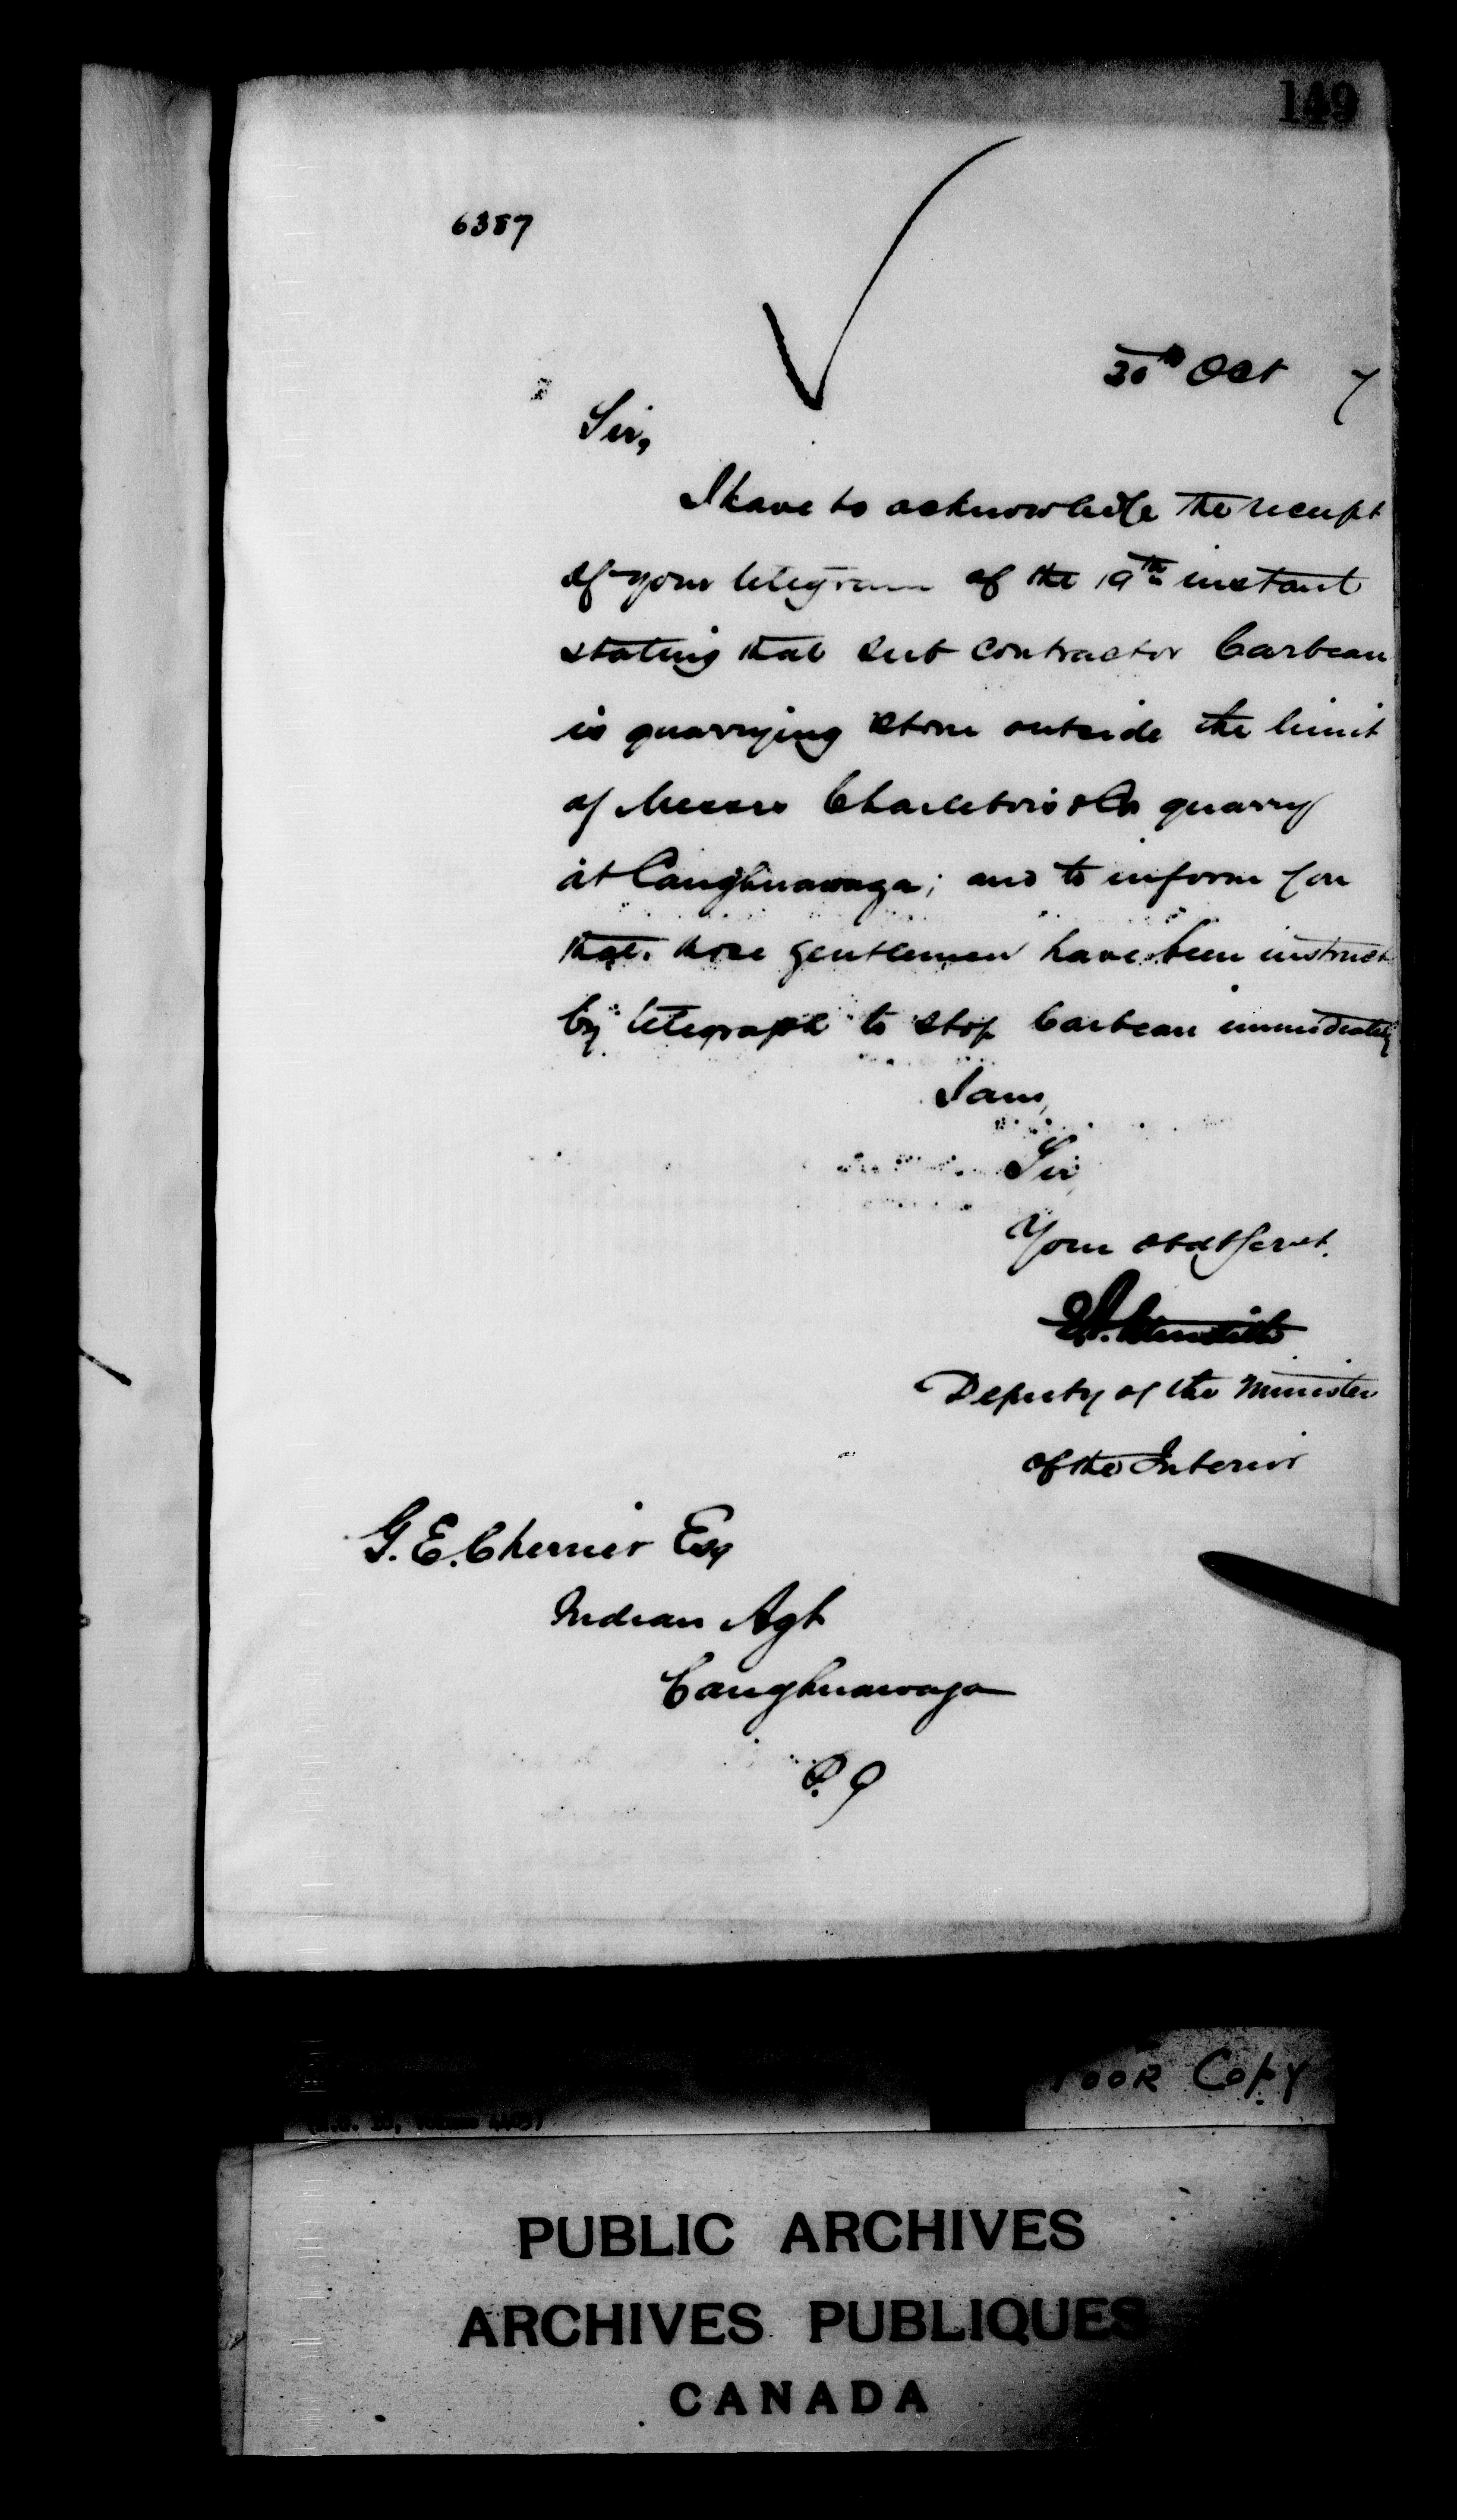 149
6387
30th Oct 7
Sir,
I have to acknowledge the receipt
of your telegram of the 19th instant
stating that sub contractor Carbeau
is quarrying stone outside the limit
of Messrs Charlebois & Co quarry
at Caughnawaga; and to inform you
that those gentlemen have been instruct
by telegraph to stop Carbeau immediately
I am,
Sir,
Your obdt servt.
E.A. Meredith
Deputy of the Minister
of the Interior
G. E. Cherrier Esq
Indian Agt
Caughnawaga
P. Q
Poor Copy
PUBLIC ARCHIVES
ARCHIVES PUBLIQUES
CANADA